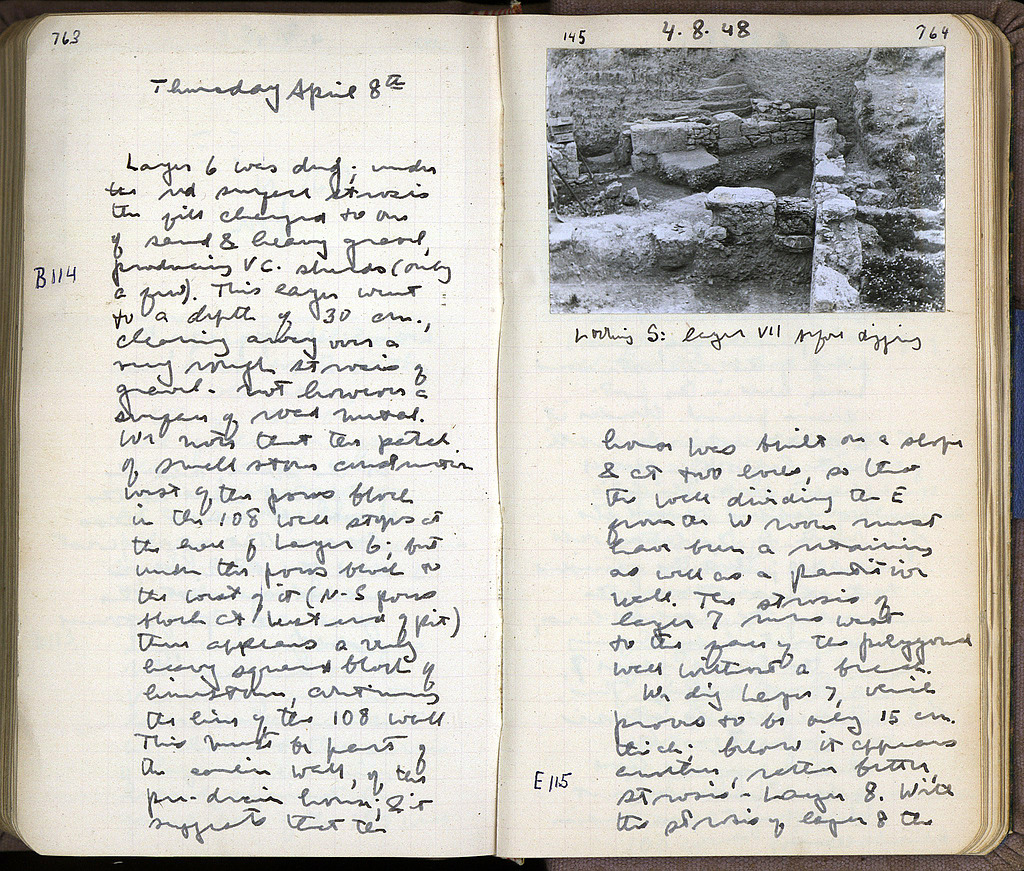 763
Thursday April 8th
Layer 6 was dug; under
the red surface strosis
the fill changed to one
of sand & heavy gravel,
producing V C. sherds (only
B 114
a few). This layer went
to a depth of 30 cm.,
clearing away over a
very rough strosis of
gravel - not however a
surface of road metal.
We note that the patch
of small stone construction
west of the poros block
in the 108 wall stops at
the level of Layer 6; but
under the poros block to
the west of it (N-S poros
block at west end of pit)
there appears a very
heavy squared block of
limestone, continuing
the line of the 108 wall
This must be part of
the earlier wall, of the
pre-drain house; & it
suggests that the
145
4.8.48
764
Looking S: layer VII before digging
house was built on a slope
& at two levels, so that
the wall dividing the E
from the W room must
have been a retaining
as well as a partition
wall. The strosis of
layer 7 runs west
to the face of the polygonal
wall without a break.
We dig Layer 7, which
proves to be only 15 cm.
thick; below it appears
another, rather better,
E 115
strosis - Layer 8. With
the strosis of layer 8 the